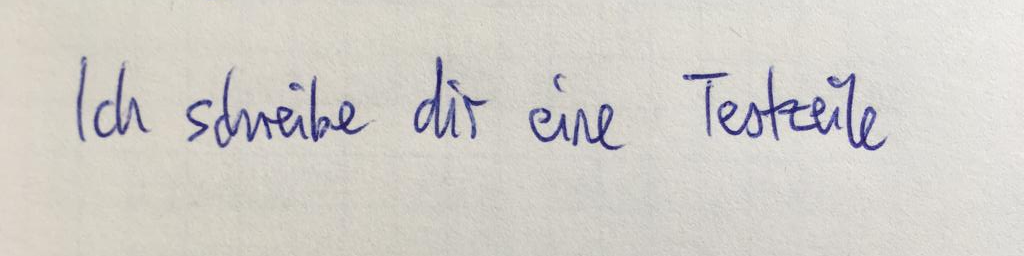 Ich schreibe dir eine Testzeile